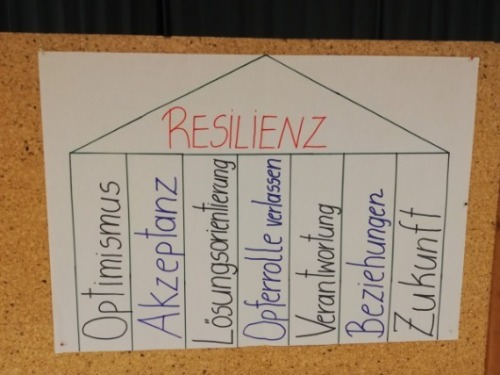 RESILIENZ
Optimismus
Akzeptanz
Lösungsorientierung
Opferrolle verlassen
Verantwortung
Beziehungen
Zukunft